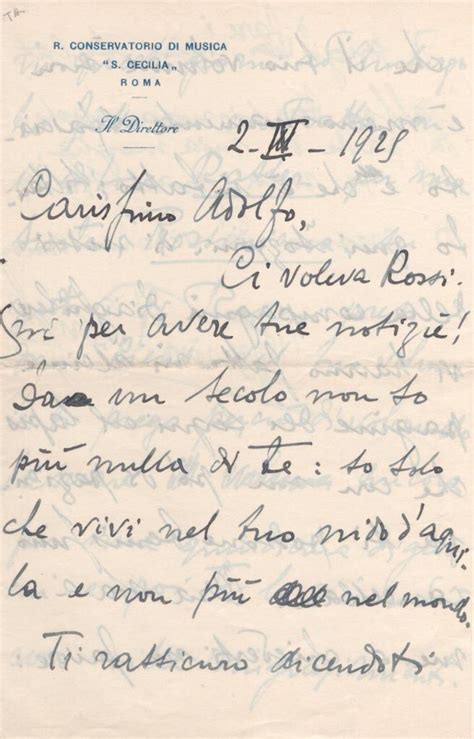 TA.
R. CONSERVATORIO DI MUSICA
"S. CECILIA„
ROMA
Il Direttore
2-III-1925
Carissimo Adolfo,
Ci voleva Rossi-
ni per avere tue notizie!
Da un secolo non so
più nulla di te: so solo
che vivi nel tuo nido d'aqui-
la e non più nel mondo.
Ti rassicuro dicendoti